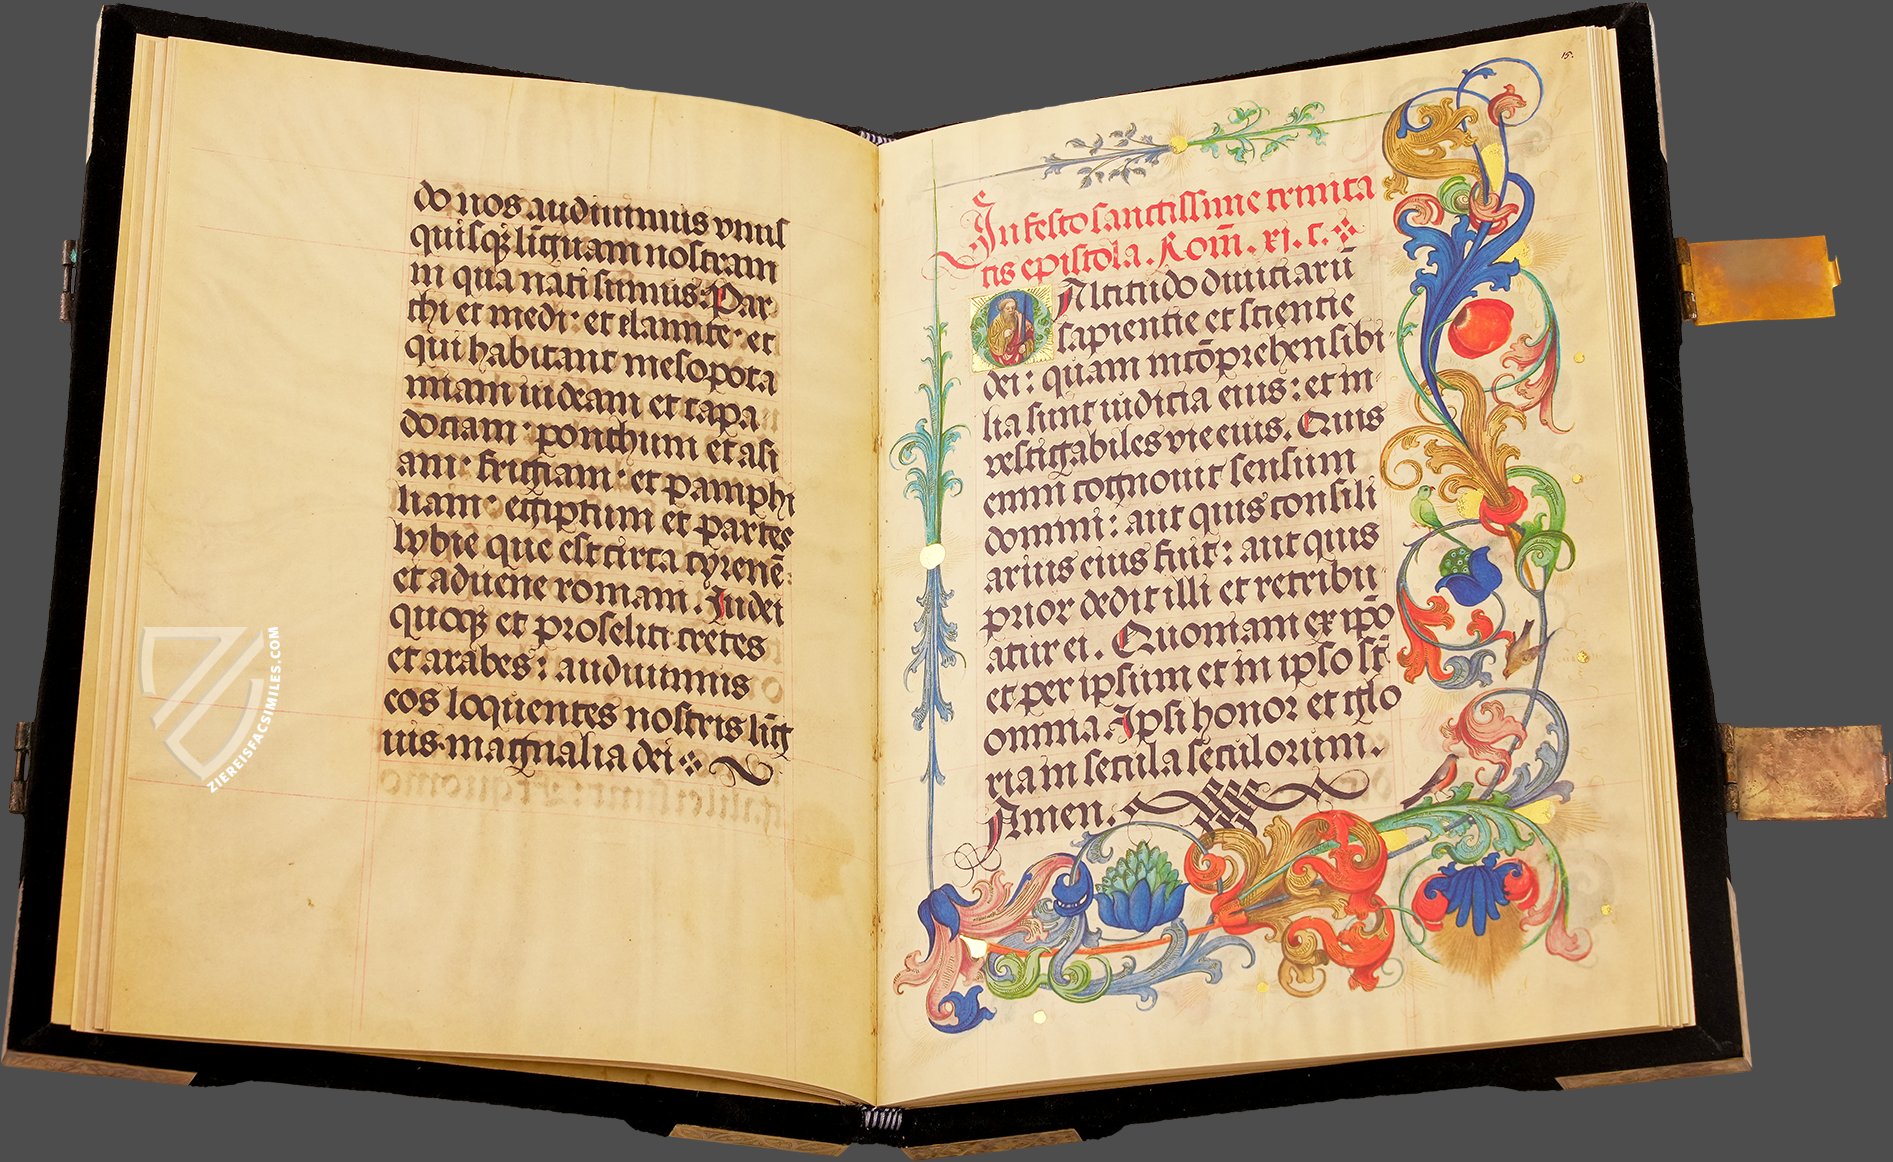 do nos audiuimus vnus
quisq̃ lin̄guam nostram
in qua nati sumus: Par
thi et medi: et elamite: et
qui habitant mesopota
miam iudeam et capa
dociam: ponthum et asi
am: frigiam: et pamphi
liam: egiptum et partes
lybie que est circa cyrenē:
et aduene romani. Judei
quoq̃ et proseliti cretes
et arabes: audiuimus
eos loquentes nostris lin̄g
uis magnalia dei
15.
In festo sanctissime trinita
tis epistola. Rom̄. xj. c.
O Altitudo diuiciarū
sapientie et scientie
dei: quam incōprehensibi
lia sunt iudicia eius: et in
vestigabiles vie eius. Quis
enim cognouit sensum
domini: aut quis consili
arius eius fuit: aut quis
prior dedit illi et retribu
atur ei. Quoniam ex ip̄o
et per ipsum et in ipso st̄
omnia. Ipsi honor et glo
riam secula seculorum.
Amen.
ZIEREISFACSIMILES.COM